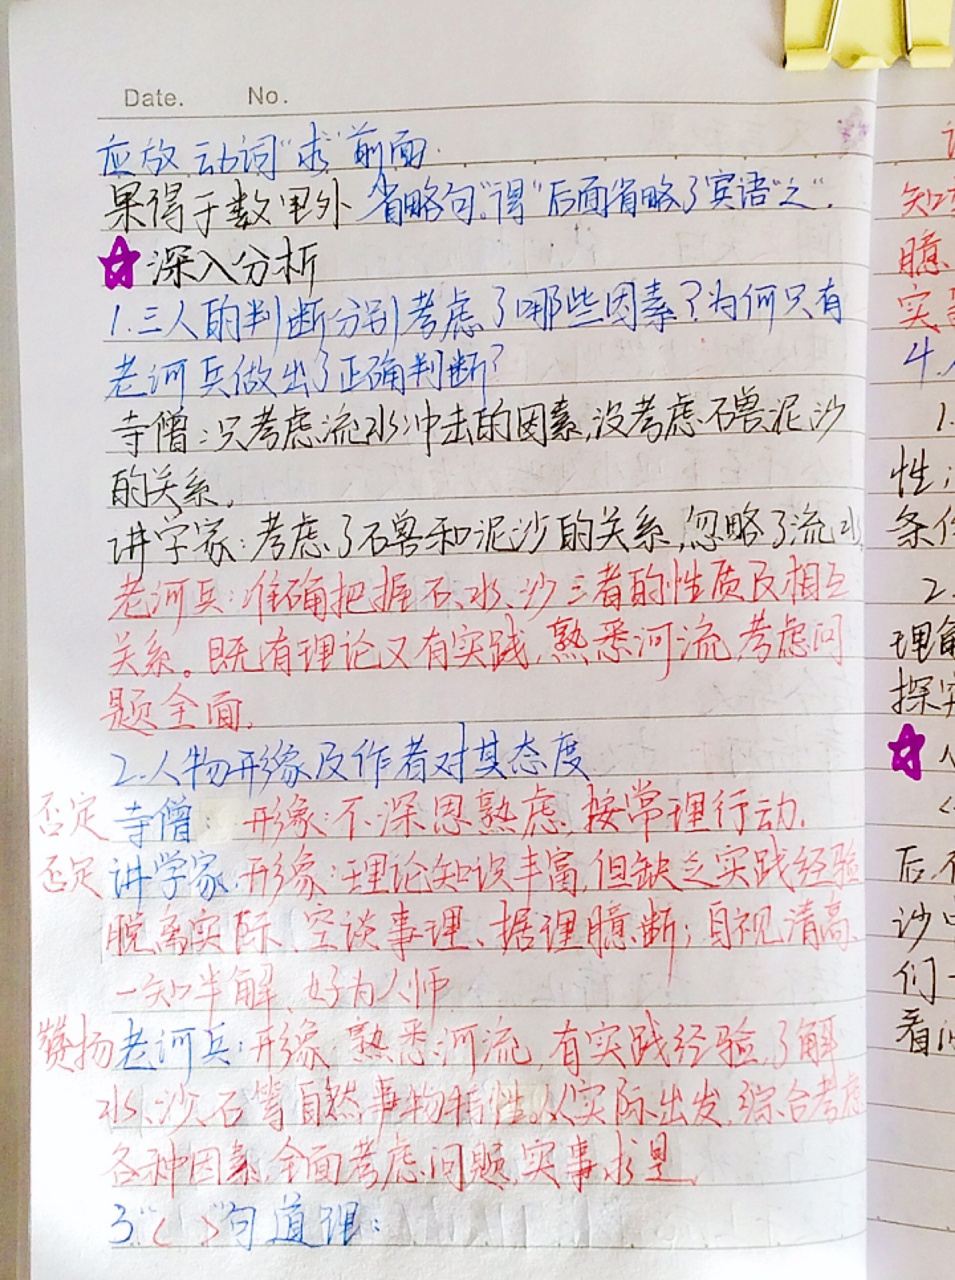 Date. No.
应放动词"求"前面.
果得于数里外 省略句."得"后面省略了宾语"之".
深入分析
1.三人的判断分别考虑了哪些因素?为何只有
老河兵做出了正确判断?
寺僧:只考虑流水冲击的因素,没考虑石兽泥沙
的关系.
讲学家:考虑了石兽和泥沙的关系,忽略了流水
老河兵:准确把握石、水、沙三者的性质及相互
关系。既有理论又有实践,熟悉河流,考虑问
题全面.
2.人物形象及作者对其态度
否定 寺僧: 形象:不深思熟虑,按常理行动.
否定 讲学家:形象:理论知识丰富,但缺乏实践经验
脱离实际、空谈事理、据理臆断;自视清高、
一知半解、好为人师
赞扬 老河兵:形象 熟悉河流,有实践经验,了解
水、沙、石等自然事物特性。从实际出发,综合考虑
各种因素,全面考虑问题,实事求是.
3."< >"句道理:
知
臆
实
4.
1.
性;
条件
2.
理解
探究
人
<
后,不
沙
们一
看